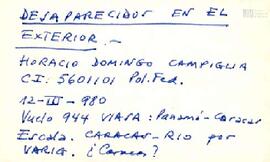 DESAPARECIDOS EN EL
EXTERIOR.-
HORACIO DOMINGO CAMPIGLIA
CI: 5601101 Pol. Fed.
12-III-980
Vuelo 944 VIASA: Panamá-Caracas
Escala. CARACAS-RIO por
VARIG. ¿Caracas?